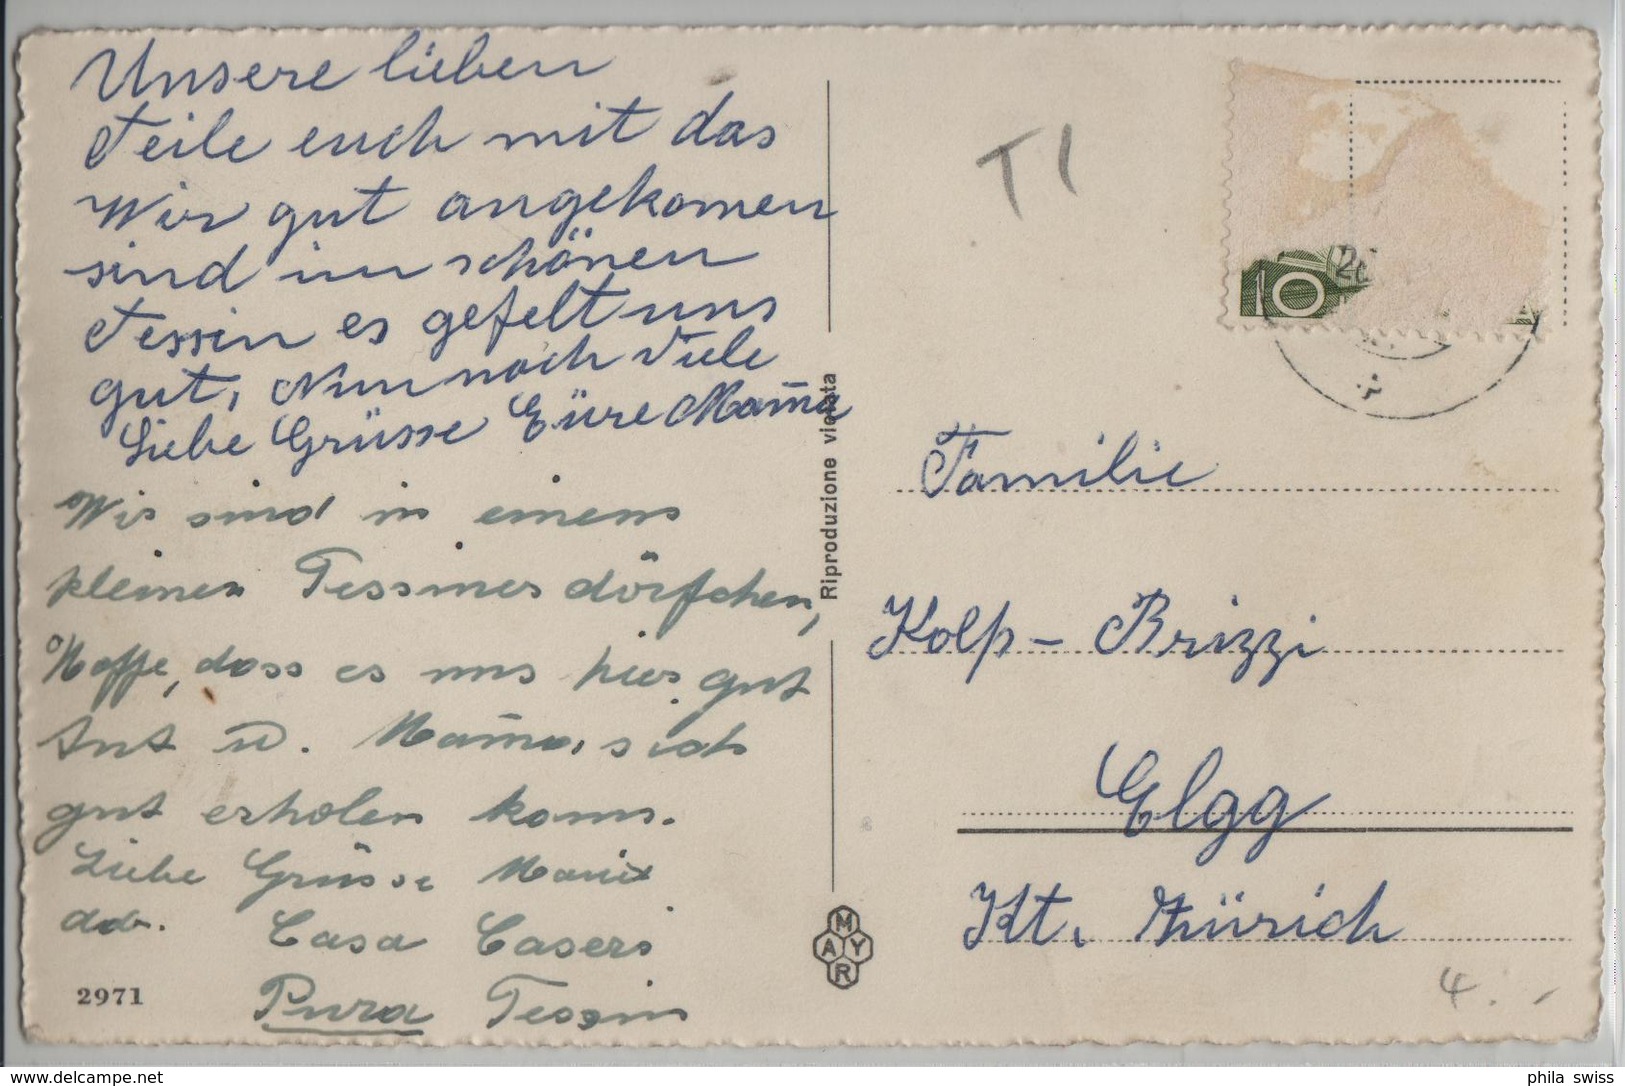 Unsere lieben
Teile euch mit das
Wir gut angekomen
sind im schönen
Tessin es gefelt uns
gut, Nun noch Viele
Liebe Grüsse Eüre Mam̄a
Wir sind in einem
kleinen Tessinerdörfchen,
Hoffe, dass es uns hier gut
tut u. Mam̄a, sich
gut erholen kann.
Liebe Grüsse
Casa Caseri
Pura Tessin
2971
Riproduzione vietata
MAYR
T1
10
Familie
Kolp - Brizzi
Elgg
Kt. Zürich
4.-
phila swiss